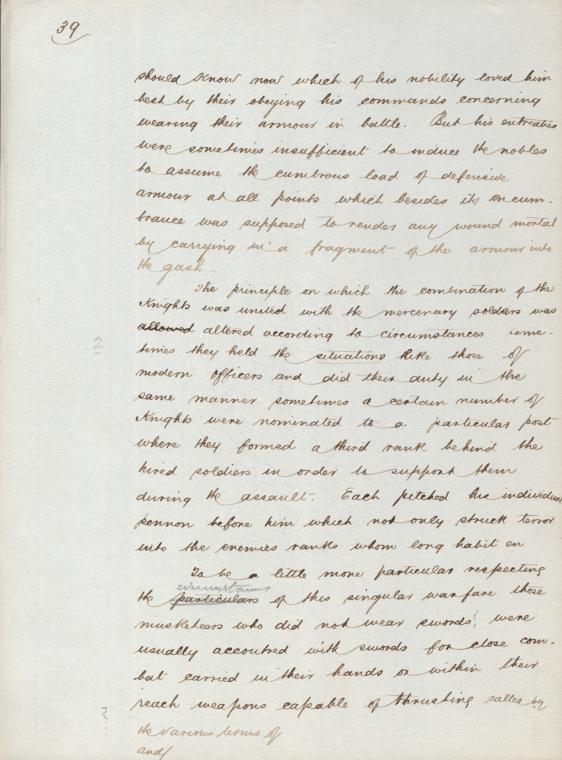 39
should know now which of his nobility loved him
best by their obeying his commands concerning
wearing their armour in battle. But his entreaties
were sometimes insufficient to induce the nobles
to assume the cumbrous load of defensive
armour at all points which besides its encum-
brance was supposed to render any wound mortal
by carrying in a fragment of the armour into
the gash.
The principle on which the combination of the
Knights was united with the mercenary soldiers was
allowed altered according to circumstances some-
times they held the situations like those of
modern officers and did their duty in the
same manner sometimes a certain number of
Knights were nominated to a particular post
where they formed a third rank behind the
hired soldiers in order to support them
during the assault. Each pitched his individual
pennon before him which not only struck terror
into the enemies ranks whom long habit en
To be a little more particular respecting
circumstances
the particulars of this singular warfare those
musketeers who did not wear swords, were
usually accoutred with swords for close com-
bat carried in their hands or within their
reach weapons capable of thrusting called by
the various terms of
and/